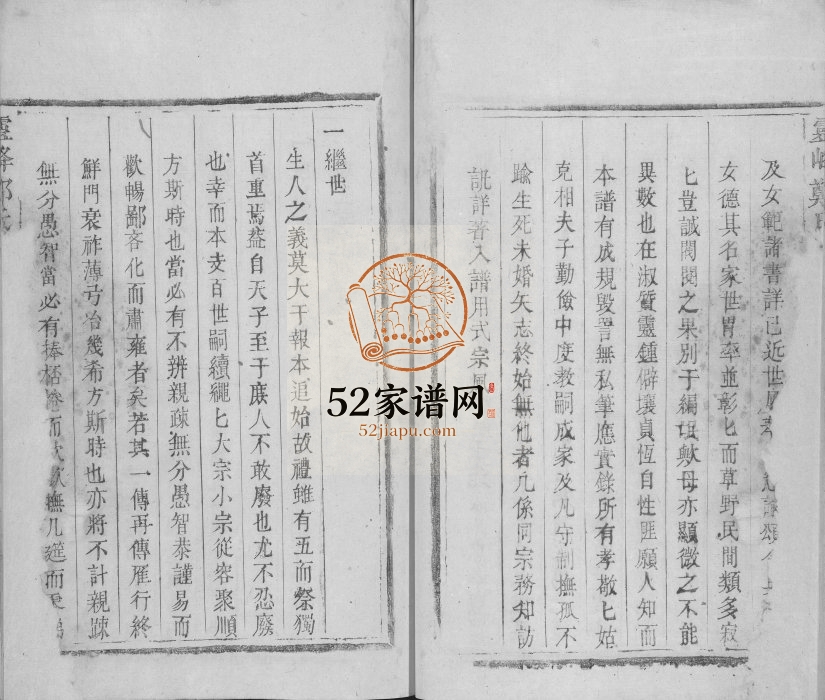 及女範諸書詳已近世
女德其名家世胄率並彰匕而草野民間類多寂
匕豈誠閥閱之果別于編氓歟毋亦顯微之不能
異數也在淑質靈鍾僻壤貞恆自性匪願人知而
本譜有成規毀詈無私筆應實錄所有孝敬匕姑
克相夫子勤儉中度教嗣成家及凡守制撫孤不
踰生死未婚矢志終始無他者凡係同宗務知訪
詵詳著入譜用式宗風
一繼世
生人之義莫大于報本追始故禮雖有五而祭獨
首重焉葢自天子至于庶人不敢廢也尤不忍廢
也幸而本支百世嗣續繩匕大宗小宗從容聚順
方斯時也當必有不辨親疎無分愚智恭謹易而
歡暢鄙吝化而肅雍者矣若其一傳再傳雁行終
鮮門衰祚薄弓冶幾希方斯時也亦將不計親疎
無分愚智當必有捧栝棬而撫几筵而
52家谱网
52jiapu.com